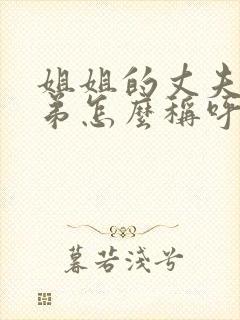 姐姐的丈夫
弟怎麼稱呼
暮若淺兮